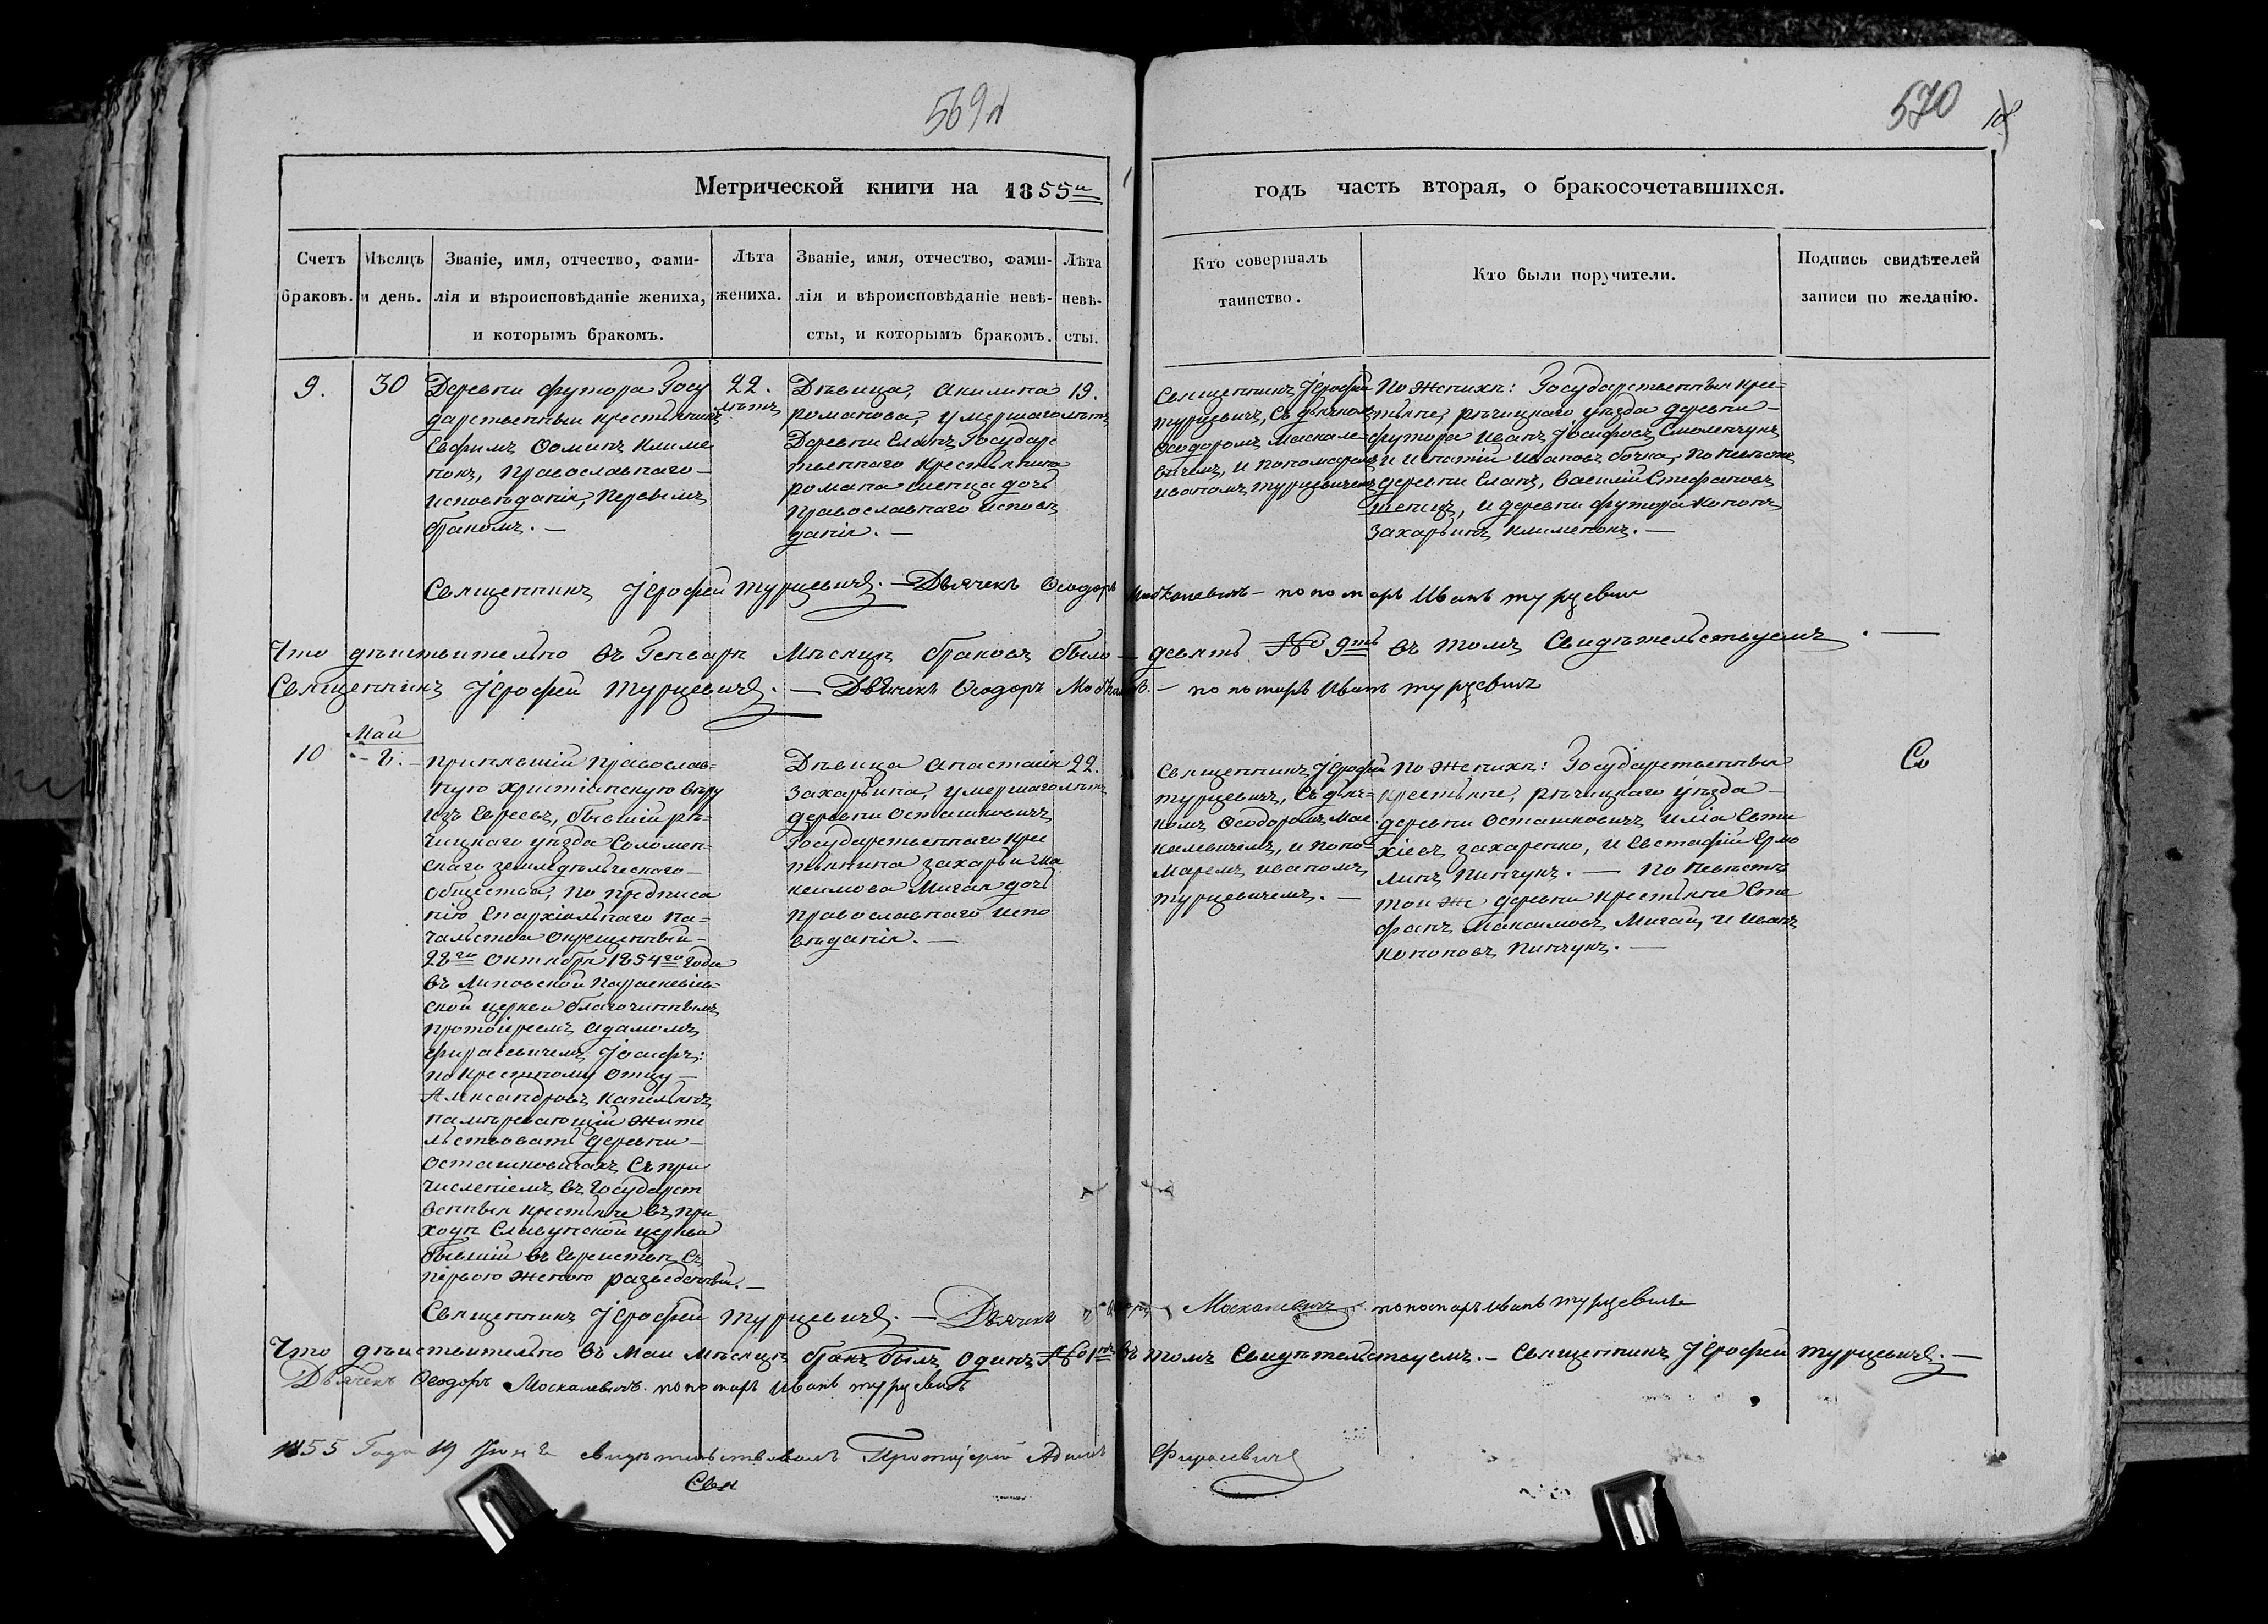 569 об
570
18
Метрической книги на 1855й
годъ часть вторая, о бракосочетавшихся.
Счетъ браковъ.
Мѣсяцъ и день.
Званіе, имя, отчество, фами-
лія и вѣроисповѣданіе жениха,
и которымъ бракомъ.
Лѣта
жениха.
Званіе, имя, отчество, фами-
лія и вѣроисповѣданіе невѣ-
сты, и которымъ бракомъ.
Лѣта
невѣ-
сты.
Кто совершалъ
таинство.
Кто были поручители.
Подпись свидѣтелей
записи по желанію.
9.
30
Деревни футора Госу
дарственный крестьянинъ
Евфимъ Ѳоминъ Климе
нокъ, православнаго
исповѣданія, первымъ
бракомъ. —
22.
лѣтъ
Дѣвица, Акилина
романова, умершаго
Деревни Еланъ, Государс
твеннаго крестьянина
романа шенца дочь
православнаго исповѣ
данія. —
19.
лѣтъ
Священникъ Іерофей
турцевичъ, съ дьячкомъ
Ѳеодоромъ Маскале-
вичемъ, и пономаремъ
иваномъ турцевичемъ
По женихѣ: Государственныя крес-
тьяне, рѣчицкаго уѣзда деревни
футора Иванъ Іосифовъ Смоленчукъ
и Игнатій Ивановъ бочка, по невѣстѣ
деревни Еланъ, Василій Стефановъ
шенецъ, и деревни футора Кононъ
Захарьинъ Клименокъ. —
Священникъ Іерофей турцевичъ. — Дьячекъ Ѳеодоръ Москалевичъ — пономарь Иванъ турцевичъ
Что дѣйствительно въ Генварѣ Мѣсяцѣ браковъ было — девять № 9ть въ томъ свидѣтельствуемъ. —
Священникъ Іерофей Турцевичъ. — Дьячекъ Ѳеодоръ Москалев. — пономарь Иванъ турцевичъ
10
Маи
8. —
принявшій православ-
ную христіанскую вѣру
изъ Евреевъ, бывшій рѣ-
чицкаго уѣзда Соломен-
скаго земледѣльческаго
общества, по предписа
нію Епархіальнаго на-
чальства окрещенный
28го Октября 1854го года
въ Липовской Параскевіев-
ской церкви благочиннымъ
протоіереемъ Адамомъ
фирасевичемъ Іосифъ:
по крестному отцу —
Александровъ Капельянъ
намѣревающій жите
льствовать деревни —
Осташковичахъ съ при
численіемъ въ государст
венныя крестьяне въ при
ходѣ Славунской церкви
бывшій въ Еврействѣ съ
первою женою разведенный. —
Дѣвица Анастасія
захарьина, умершаго
деревни Осташковичъ
Государственнаго крес
тьянина захарьи Ма
ксимова Мигая дочь
православнаго испо
вѣданія. —
22.
лѣтъ
Священникъ Іерофей
турцевичъ, съ дьяч-
комъ Ѳеодоромъ Мос-
калевичемъ, и поно-
маремъ иваномъ
турцевичемъ. —
По женихѣ: Государственныя
крестьяне, рѣчицкаго уѣзда —
деревни Осташковичъ илія Евти
хіевъ захаренко, и Евстафій Ермо
линъ Пинчукъ. — По невѣстѣ
той же деревни крестьяне Сте
фанъ Максимовъ Мигай, и Иванъ
Кононовъ Пинчукъ. —
Со
Священникъ Іерофей турцевичъ. — Дьячекъ Ѳеодоръ Москалевичъ. пономарь Иванъ турцевичъ
Что дѣйствительно въ Маи мѣсяцѣ бракъ былъ одинъ № 1нъ въ томъ свидѣтельствуемъ. — Священникъ Іерофей турцевичъ. —
Дьячекъ Ѳеодоръ Москалевичъ. пономарь Иванъ турцевичъ
1855 Года 19 Іюня свидѣтельствовалъ Протоіерей Адамъ Фирасевичъ
Свя